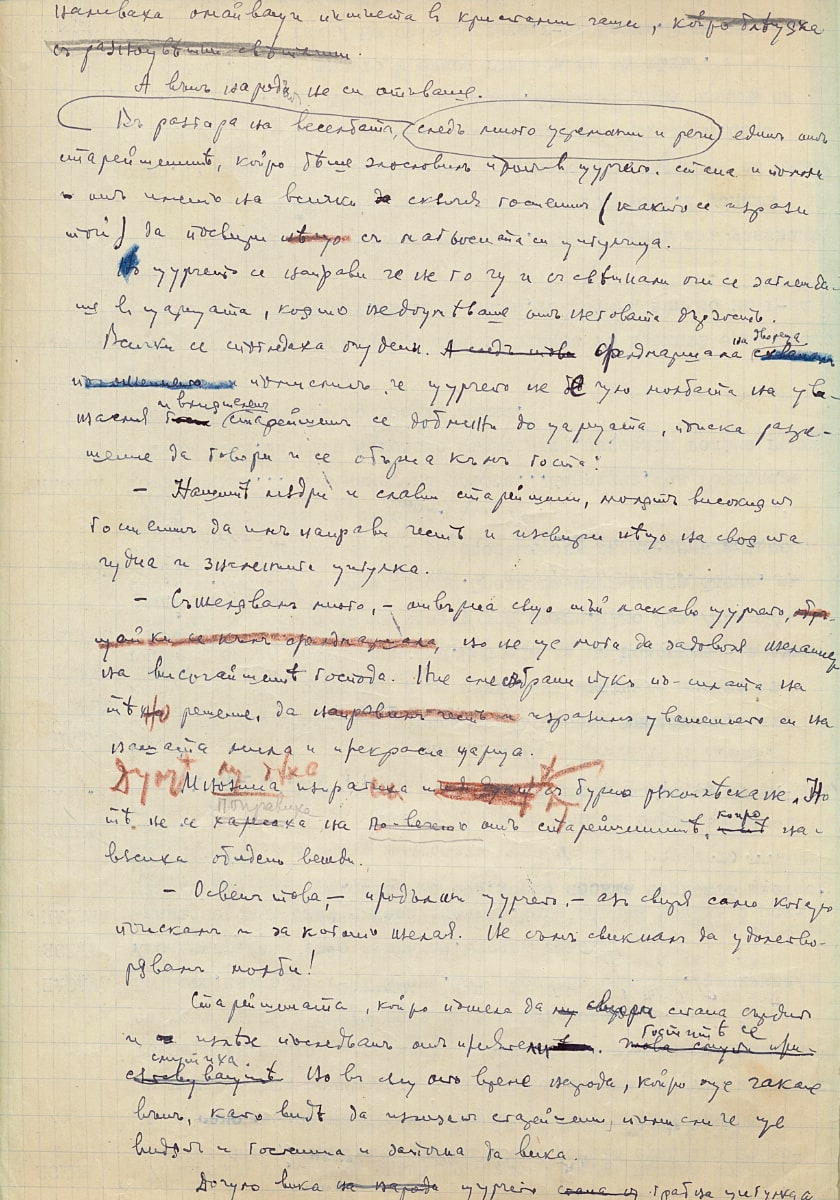 наливаха омайваще питиета в кристални чаши, който блѣщяха
съ разноцвѣтни свѣтлини.
А вънъ народъ не си отиваше.
Въ разгара на веселбата, (следъ много усмивки и речи) единъ отъ
старейшинитѣ, който бѣше злословилъ против щурчето. стана и помоли
отъ името на всички да скъпия гостенинъ (както се изрази
той) да посвири нѣщо съ магьосната си цигулчица.
Но щурчето се направи че не го чу и съ свѣтнали очи се загледа-
ше въ царицата, която недоумѣваше отъ неговата дързость.
Всички се спогледаха очудени. А следъ това фелдмаршала на двореца
помисли, че щурчето не бѣ чуло молбата на ува-
жаемия и влиятеленъ старейшинъ се доближи до царицата, поиска разре-
шение да говори и се обърна къмъ госта:
— Нашитѣ мѫдри и славни старейшини, молятъ високия
гостенинъ да имъ направи честь и изсвири нѣщо на своята
чудна и знаменита цигулка.
— Съжелявамъ много, – отвърна също тъй ласкаво щурчето, обръ-
щайки се къмъ фелдмаршала, но не ще мога да задоволя желанието
на височайшитѣ господа. Ние сме събрани тукъ по силата на
тѣхно решение, да направимъ честь и изразимъ уважението си на
нашата мила и прекрасна царица.
Думитѣ му бѣха
Мнозина изпратиха съ бурно рѫкоплѣскане. Но
поправиха
тѣ не се харесаха на повечето отъ старейшинитѣ, който на-
всиха обидени вежди.
— Освенъ това, – продължи щурчето, – азъ свиря само когато
поискамъ и за когото желая. Не съмъ свикналъ да удовлетво-
рявамъ молби!
Старейшината, който помоли да му свири стана сърдитъ
и излѣзе последванъ отъ приятели. Това смути при-
гоститѣ се
смутиха.
сѫтствуващитѣ Но въ същото време народа, който още чакаше
вънъ, като видѣ да излизатъ старейшини, помисли че ще
видятъ и гостенина и започна да вика.
Дочуло вика на народа щурчето стана и грабна цигулката